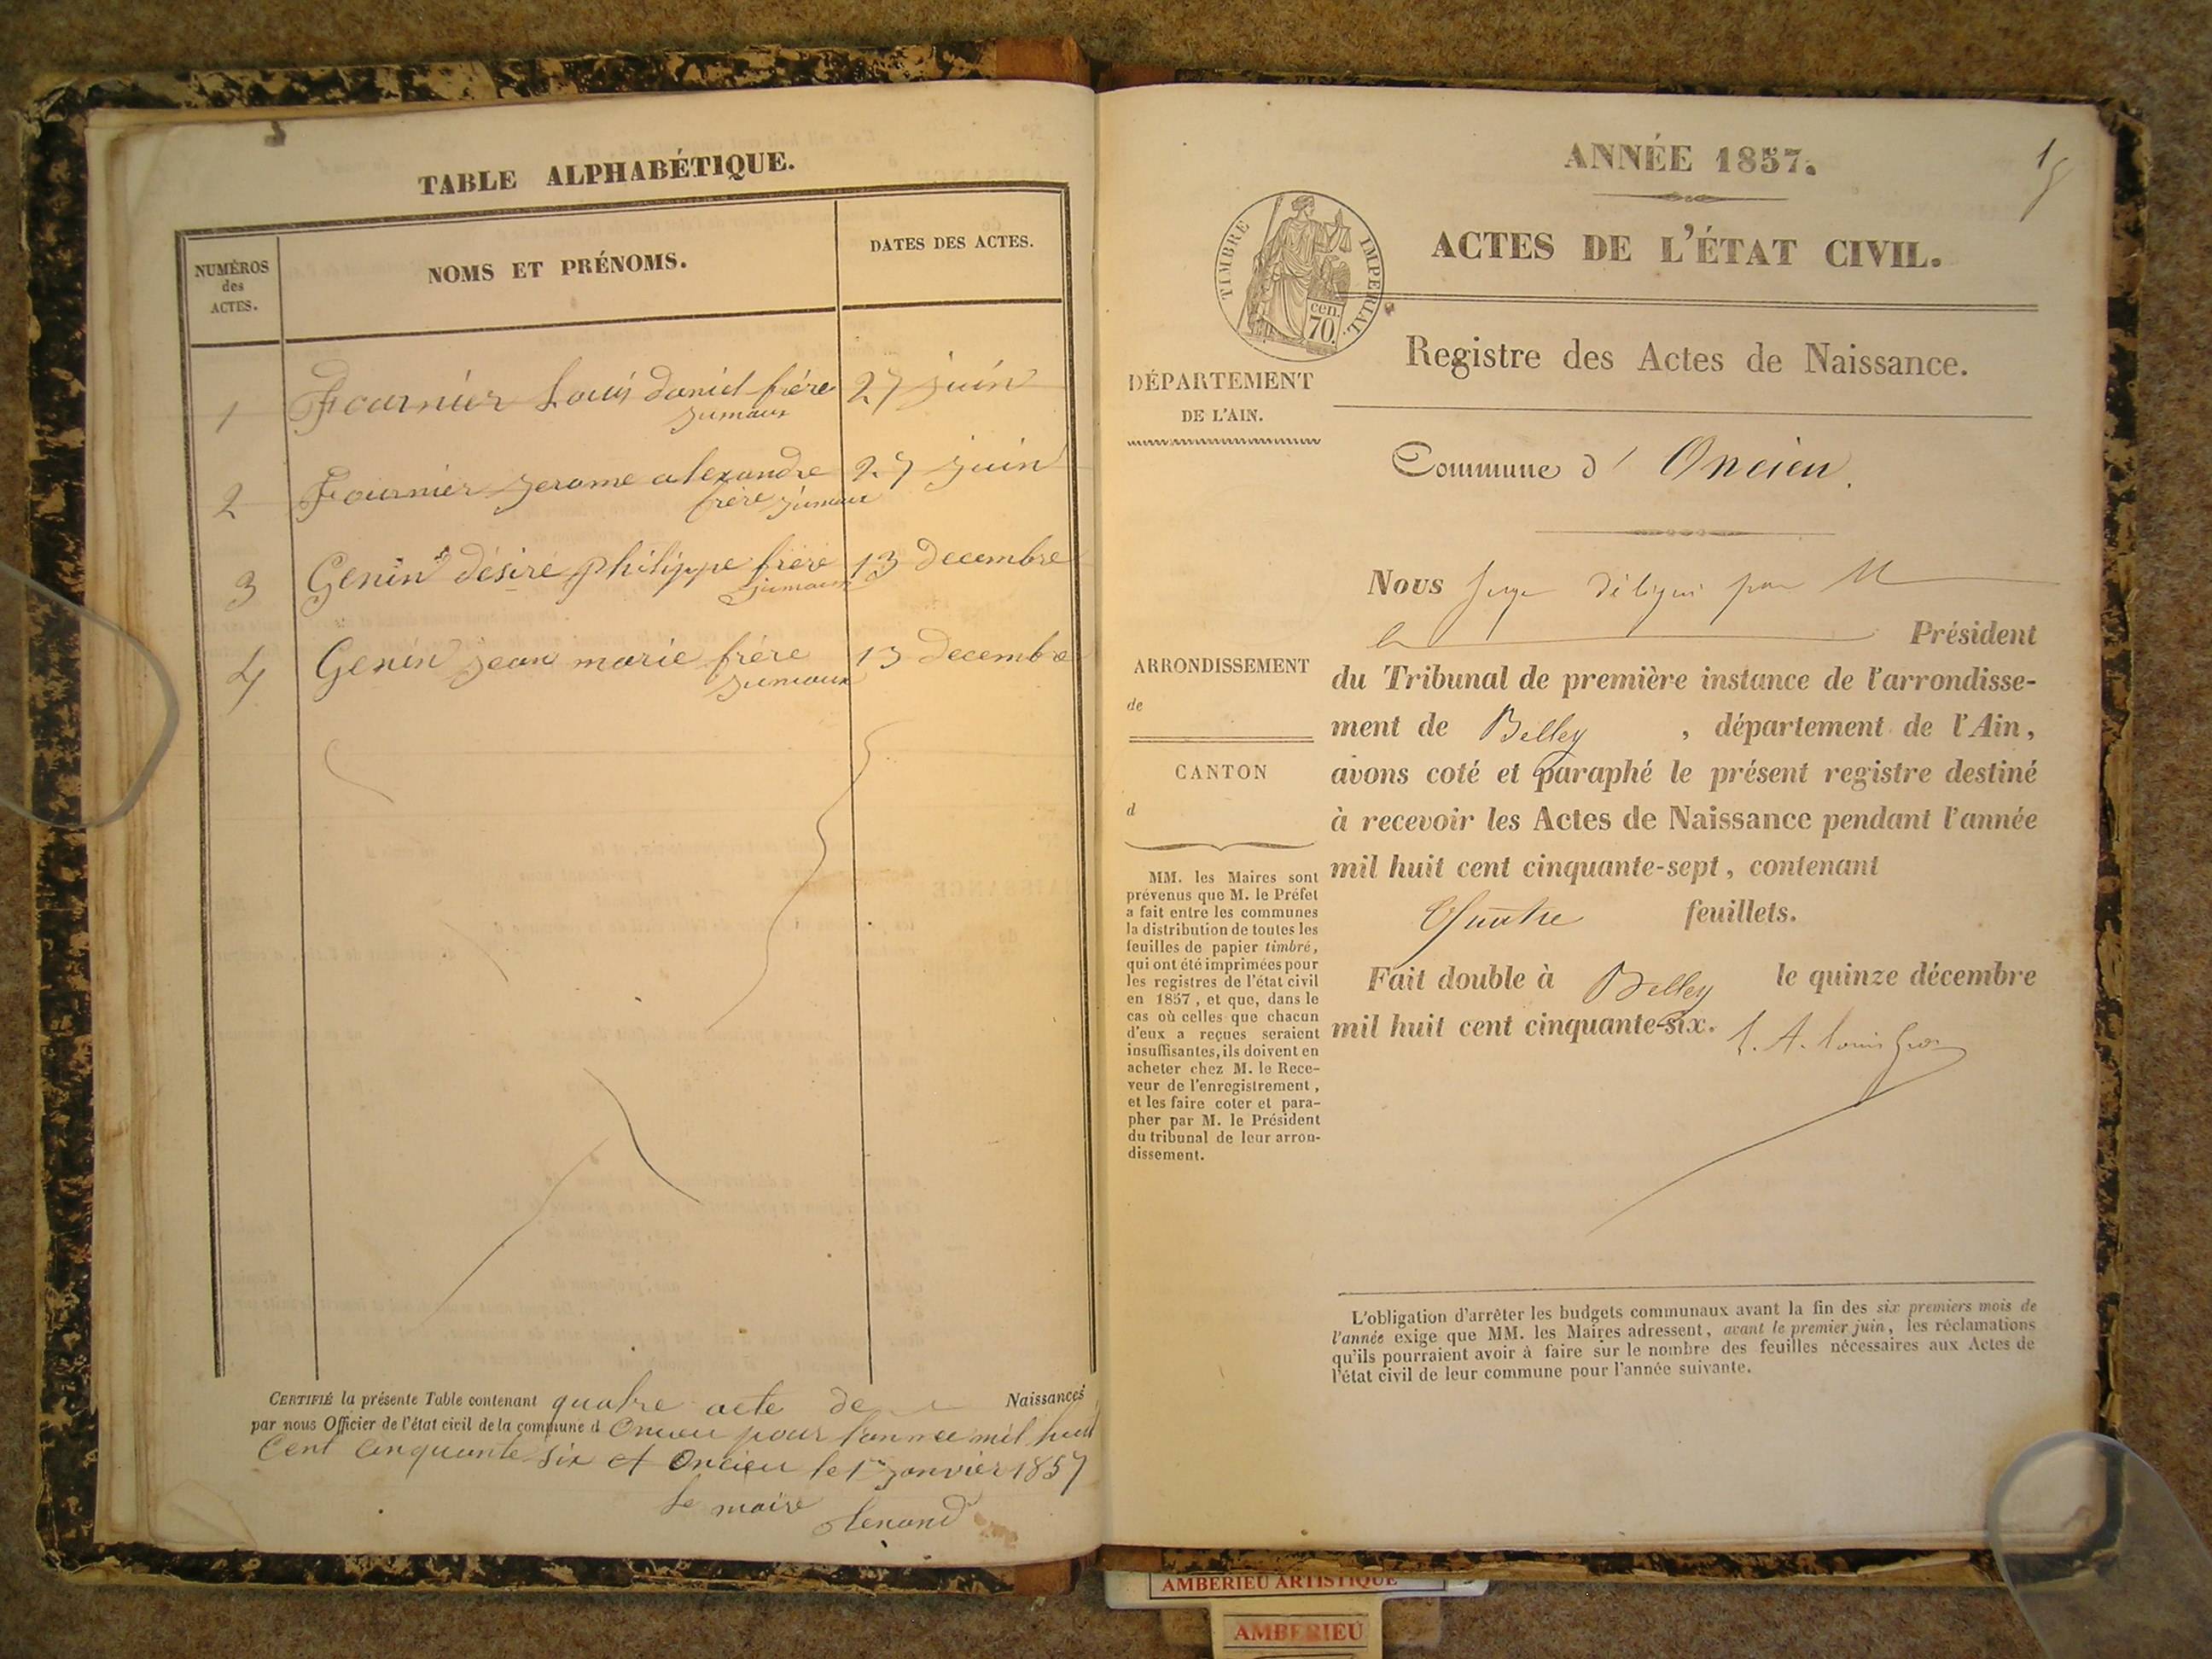 TABLE ALPHABÉTIQUE.
NUMÉROS
des
ACTES.
NOMS ET PRÉNOMS.
DATES DES ACTES.
1 Fournier Louis daniel frère 27 juin
jumaux
2 Fournier jerome alexandre 27 juin
frère jumaux
3 Genin désiré philippe frère 13 decembre
jumaux
4 Genin jean marie frère 13 decembre
jumaux
CERTIFIÉ la présente Table contenant quatre acte de Naissances
par nous Officier de l'état civil de la commune d Oncieu pour l'annee mil huit
Cent Cinquante six et Oncieu le 1er janvier 1857
Le maire
ANNÉE 1857.
1
ACTES DE L'ÉTAT CIVIL.
TIMBRE IMPERIAL.
cen.
70.
Registre des Actes de Naissance.
DÉPARTEMENT
DE L'AIN.
Commune d' Oncieu.
Nous Juge délégué par M
le Président
ARRONDISSEMENT
de
CANTON
d
du Tribunal de première instance de l'arrondisse-
ment de Belley , département de l'Ain,
avons coté et paraphé le présent registre destiné
à recevoir les Actes de Naissance pendant l'année
mil huit cent cinquante-sept, contenant
Quatre feuillets.
Fait double à Belley le quinze décembre
mil huit cent cinquante-six.
MM. les Maires sont
prévenus que M. le Préfet
a fait entre les communes
la distribution de toutes les
feuilles de papier timbré,
qui ont été imprimées pour
les registres de l'état civil
en 1857, et que, dans le
cas où celles que chacun
d'eux a reçues seraient
insuffisantes, ils doivent en
acheter chez M. le Rece-
veur de l'enregistrement,
et les faire coter et para-
pher par M. le Président
du tribunal de leur arron-
dissement.
L'obligation d'arrêter les budgets communaux avant la fin des six premiers mois de
l'année exige que MM. les Maires adressent, avant le premier juin, les réclamations
qu'ils pourraient avoir à faire sur le nombre des feuilles nécessaires aux Actes de
l'état civil de leur commune pour l'année suivante.
AMBERIEU ARTISTIQUE
AMBERIEU